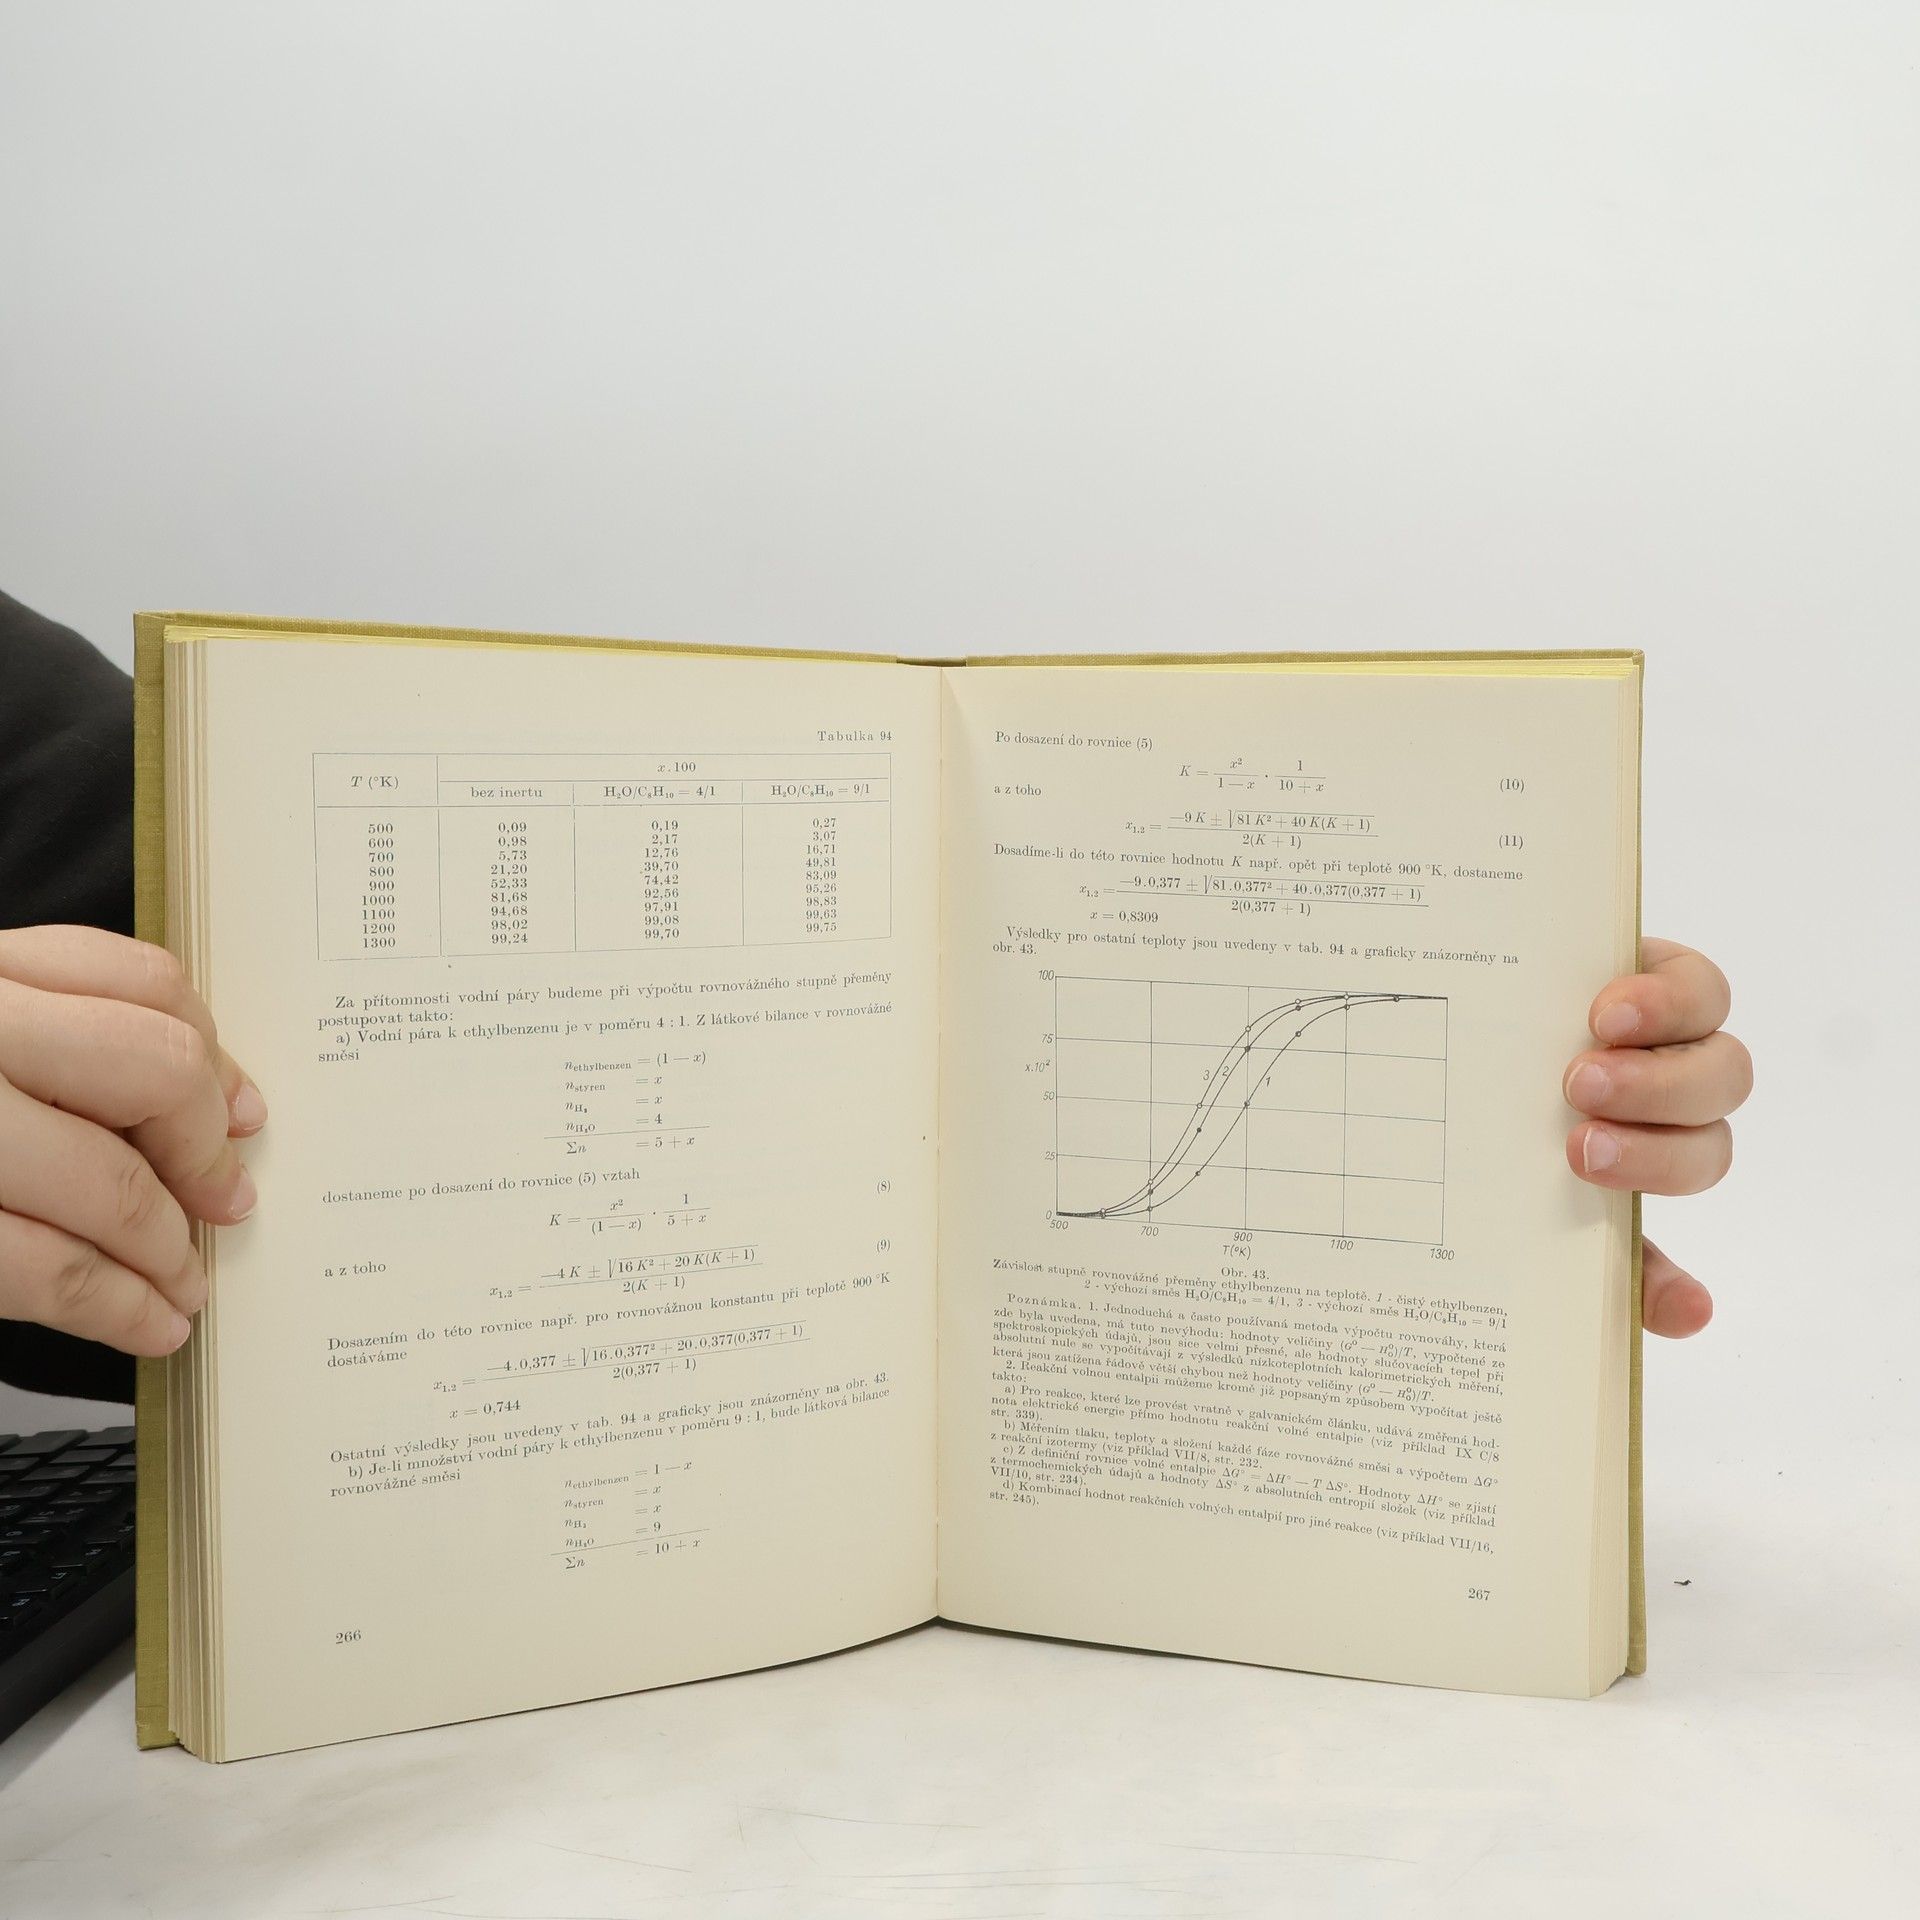 Tabulka 94
T (°K) x.100
bez inertu H₂O/C₈H₁₀ = 4/1 H₂O/C₈H₁₀ = 9/1
500 0,09 0,19 0,27
600 0,98 2,17 3,07
700 5,73 12,76 16,71
800 21,20 39,70 49,81
900 52,33 74,42 83,09
1000 81,68 92,56 95,26
1100 94,68 97,91 98,83
1200 98,02 99,08 99,63
1300 99,24 99,70 99,75
Za přítomnosti vodní páry budeme při výpočtu rovnovážného stupně přeměny
postupovat takto:
a) Vodní pára k ethylbenzenu je v poměru 4 : 1. Z látkové bilance v rovnovážné
směsi
n_ethylbenzen = (1 — x)
n_styren = x
n_H₂ = x
n_H₂O = 4
Σn = 5 + x
dostaneme po dosazení do rovnice (5) vztah
K = x²/(1 — x) · 1/(5 + x) (8)
a z toho
x₁,₂ = (—4 K ± √(16 K² + 20 K(K + 1)))/(2(K + 1)) (9)
Dosazením do této rovnice např. pro rovnovážnou konstantu při teplotě 900 °K
dostáváme
x₁,₂ = (—4.0,377 ± √(16.0,377² + 20.0,377(0,377 + 1)))/(2(0,377 + 1))
x = 0,744
Ostatní výsledky jsou uvedeny v tab. 94 a graficky jsou znázorněny na obr. 43.
b) Je-li množství vodní páry k ethylbenzenu v poměru 9 : 1, bude látková bilance
rovnovážné směsi
n_ethylbenzen = 1 — x
n_styren = x
n_H₂ = x
n_H₂O = 9
Σn = 10 + x
266
Po dosazení do rovnice (5)
K = x²/(1 — x) · 1/(10 + x) (10)
a z toho
x₁,₂ = (—9 K ± √(81 K² + 40 K(K + 1)))/(2(K + 1)) (11)
Dosadíme-li do této rovnice hodnotu K např. opět při teplotě 900 °K, dostaneme
x₁,₂ = (—9.0,377 ± √(81.0,377² + 40.0,377(0,377 + 1)))/(2(0,377 + 1))
x = 0,8309
Výsledky pro ostatní teploty jsou uvedeny v tab. 94 a graficky znázorněny na
obr. 43.
100
75
x.10²
50
25
0
3 2 1
500 700 900 1100 1300
T(°K)
Obr. 43.
Závislost stupně rovnovážné přeměny ethylbenzenu na teplotě. 1 - čistý ethylbenzen,
2 - výchozí směs H₂O/C₈H₁₀ = 4/1, 3 - výchozí směs H₂O/C₈H₁₀ = 9/1
Poznámka. 1. Jednoduchá a často používaná metoda výpočtu rovnováhy, která
zde byla uvedena, má tuto nevýhodu: hodnoty veličiny (G⁰ — H⁰₀)/T, vypočtené ze
spektroskopických údajů, jsou sice velmi přesné, ale hodnoty slučovacích tepel při
absolutní nule se vypočítávají z výsledků nízkoteplotních kalorimetrických měření,
která jsou zatížena řádově větší chybou než hodnoty veličiny (G⁰ — H⁰₀)/T.
2. Reakční volnou entalpii můžeme kromě již popsaným způsobem vypočítat ještě
takto:
a) Pro reakce, které lze provést vratně v galvanickém článku, udává změřená hod-
nota elektrické energie přímo hodnotu reakční volné entalpie (viz příklad IX C/8
str. 339).
b) Měřením tlaku, teploty a složení každé fáze rovnovážné směsi a výpočtem ΔG°
z reakční izotermy (viz příklad VII/8, str. 232.
c) Z definiční rovnice volné entalpie ΔG° = ΔH° — T ΔS°. Hodnoty ΔH° se zjistí
z termochemických údajů a hodnoty ΔS° z absolutních entropií složek (viz příklad
VII/10, str. 234).
d) Kombinací hodnot reakčních volných entalpií pro jiné reakce (viz příklad VII/16,
str. 245).
267